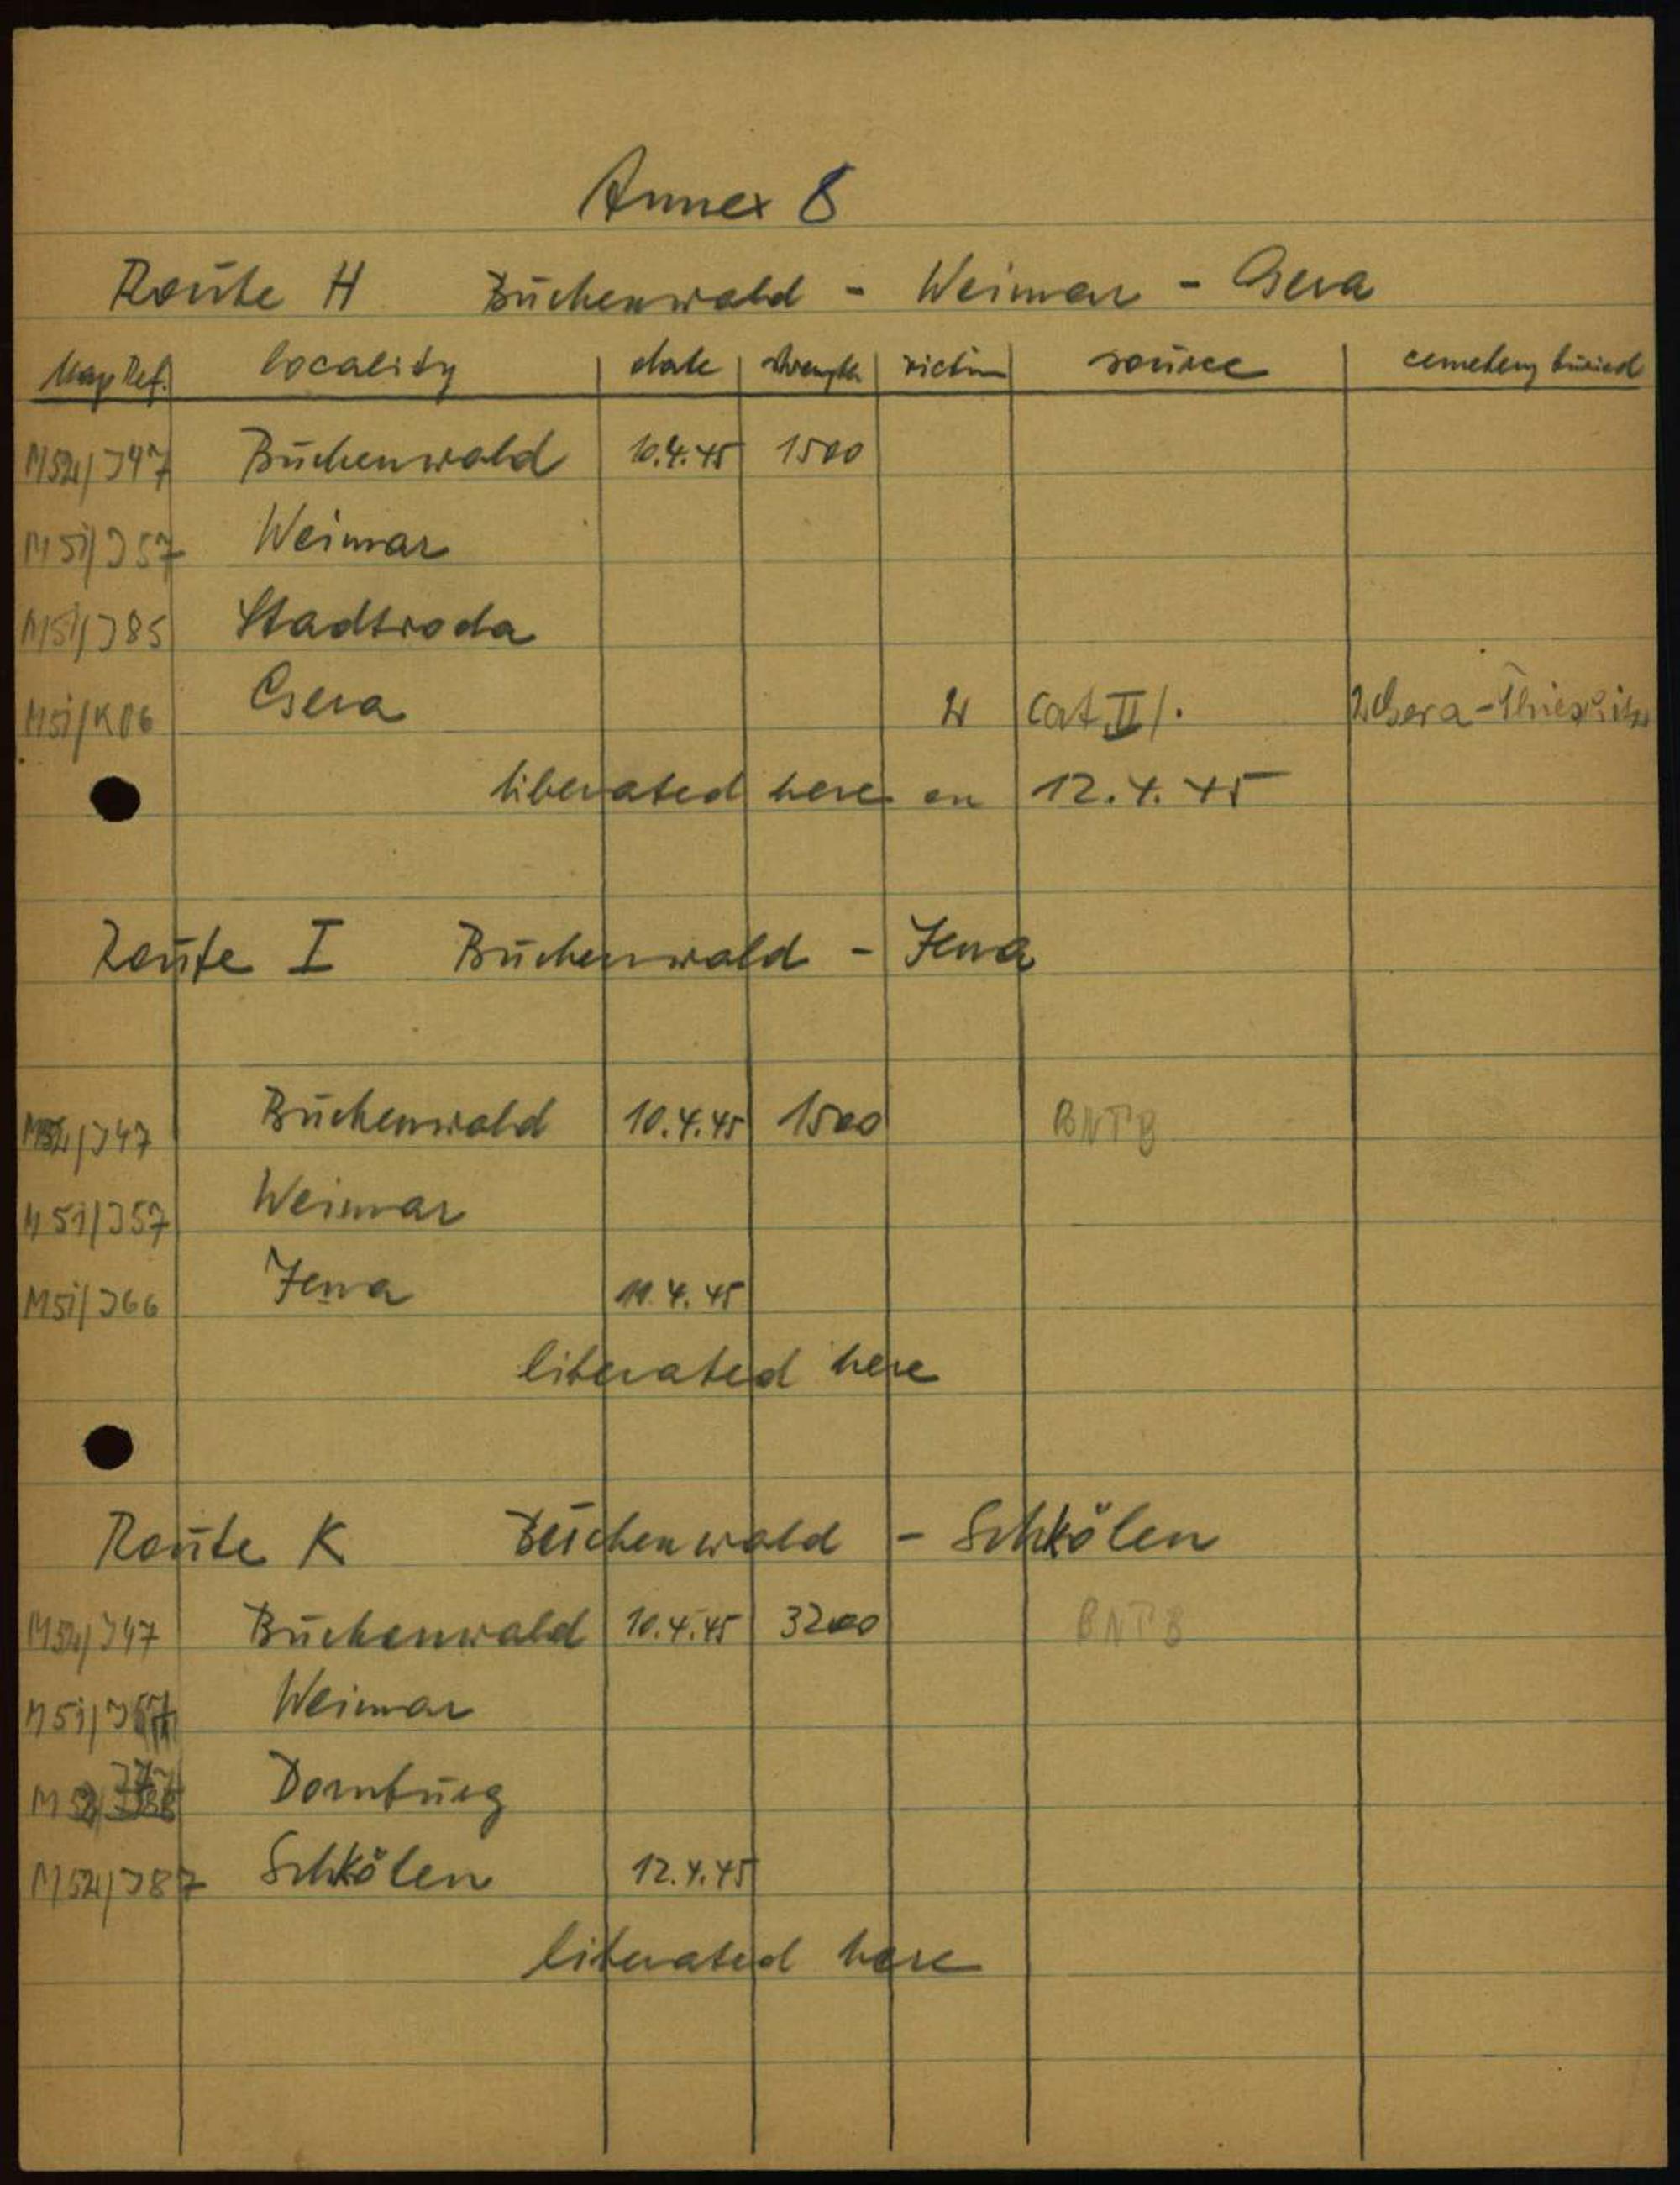 Annex 8
Route H Buchenwald - Weimar - Gera
Map Ref. locality date strength victim source cemetery buried
M52/J47 Buchenwald 10.4.45 1500
M51/J57 Weimar
M51/J85 Stadtroda
M51/K06 Gera 2 Cat. II/. 2 Gera-
liberated here on 12.4.45
Route I Buchenwald - Jena
M52/J47 Buchenwald 10.4.45 1500 BNTB
M51/J57 Weimar
M51/J66 Jena 11.4.45
liberated here
Route K Buchenwald - Schkölen
M52/J47 Buchenwald 10.4.45 3200 BNTB
M51/J57 Weimar
J77 Dornburg
M52/J87 Schkölen 12.4.45
liberated here